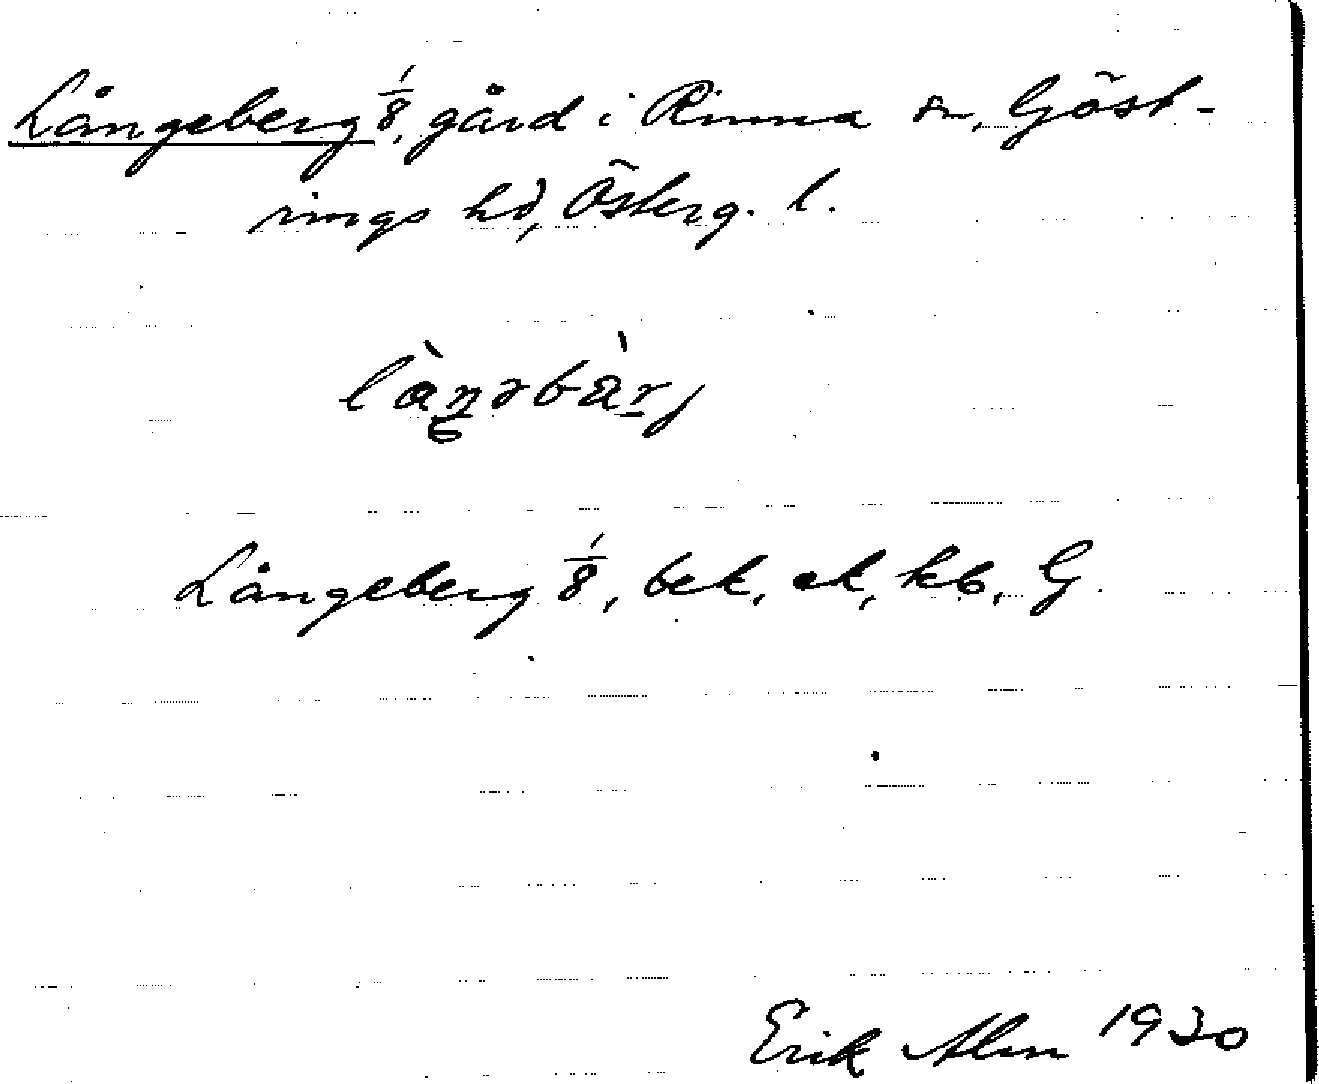 Långeberg 1/8, gård i Rinna sn, Göst-
rings hd, Österg. l.
Långeberg 1/8, bek, ek, kb, G.
Erik Alm 1930